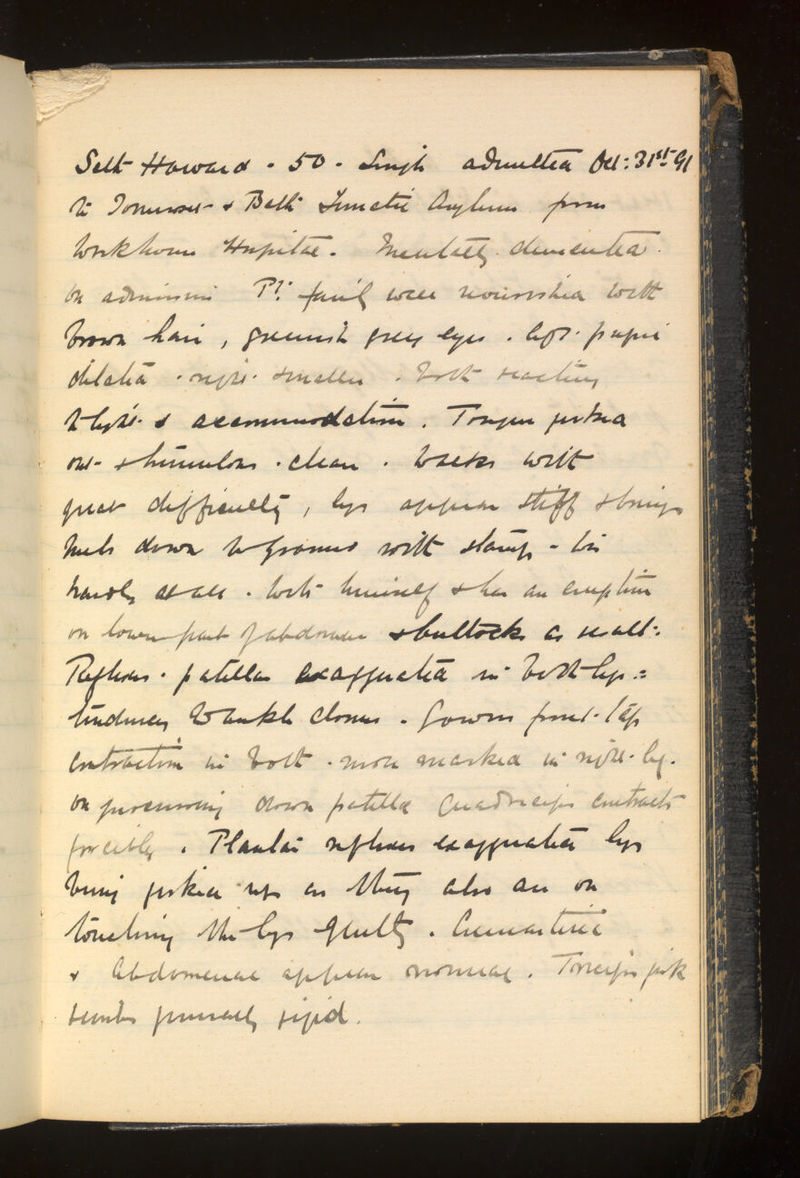 Seth Howard - 50 - Single admitted Oct: 31st 91
to Somerset & Bath Lunatic Asylum from
Workhouse Hospital. Mentally demented.
On admission Pt: fairly well nourished with
brown hair, greenish grey eyes. left pupil
dilated. right smaller. both reacting
to light & accommodation. Tongue jerked
out tremulous. clean. Walks with
great difficulty, legs appear stiff & brings
heels down to ground with stamp -
hardly at all. Wets himself & has an eruption
on lower part of abdomen & buttocks as result.
Reflexes. patellar exaggerated in both legs -
tendency to ankle clonus. Gowers front-tap
contraction in both. more marked in right leg.
On percussing down patella Quadriceps contracts
forcibly. Plantar reflexes exaggerated legs
being jerked up as they also are on
touching the legs gently. Cremasteric
& Abdominal appear normal. Triceps jerk
generally rigid.